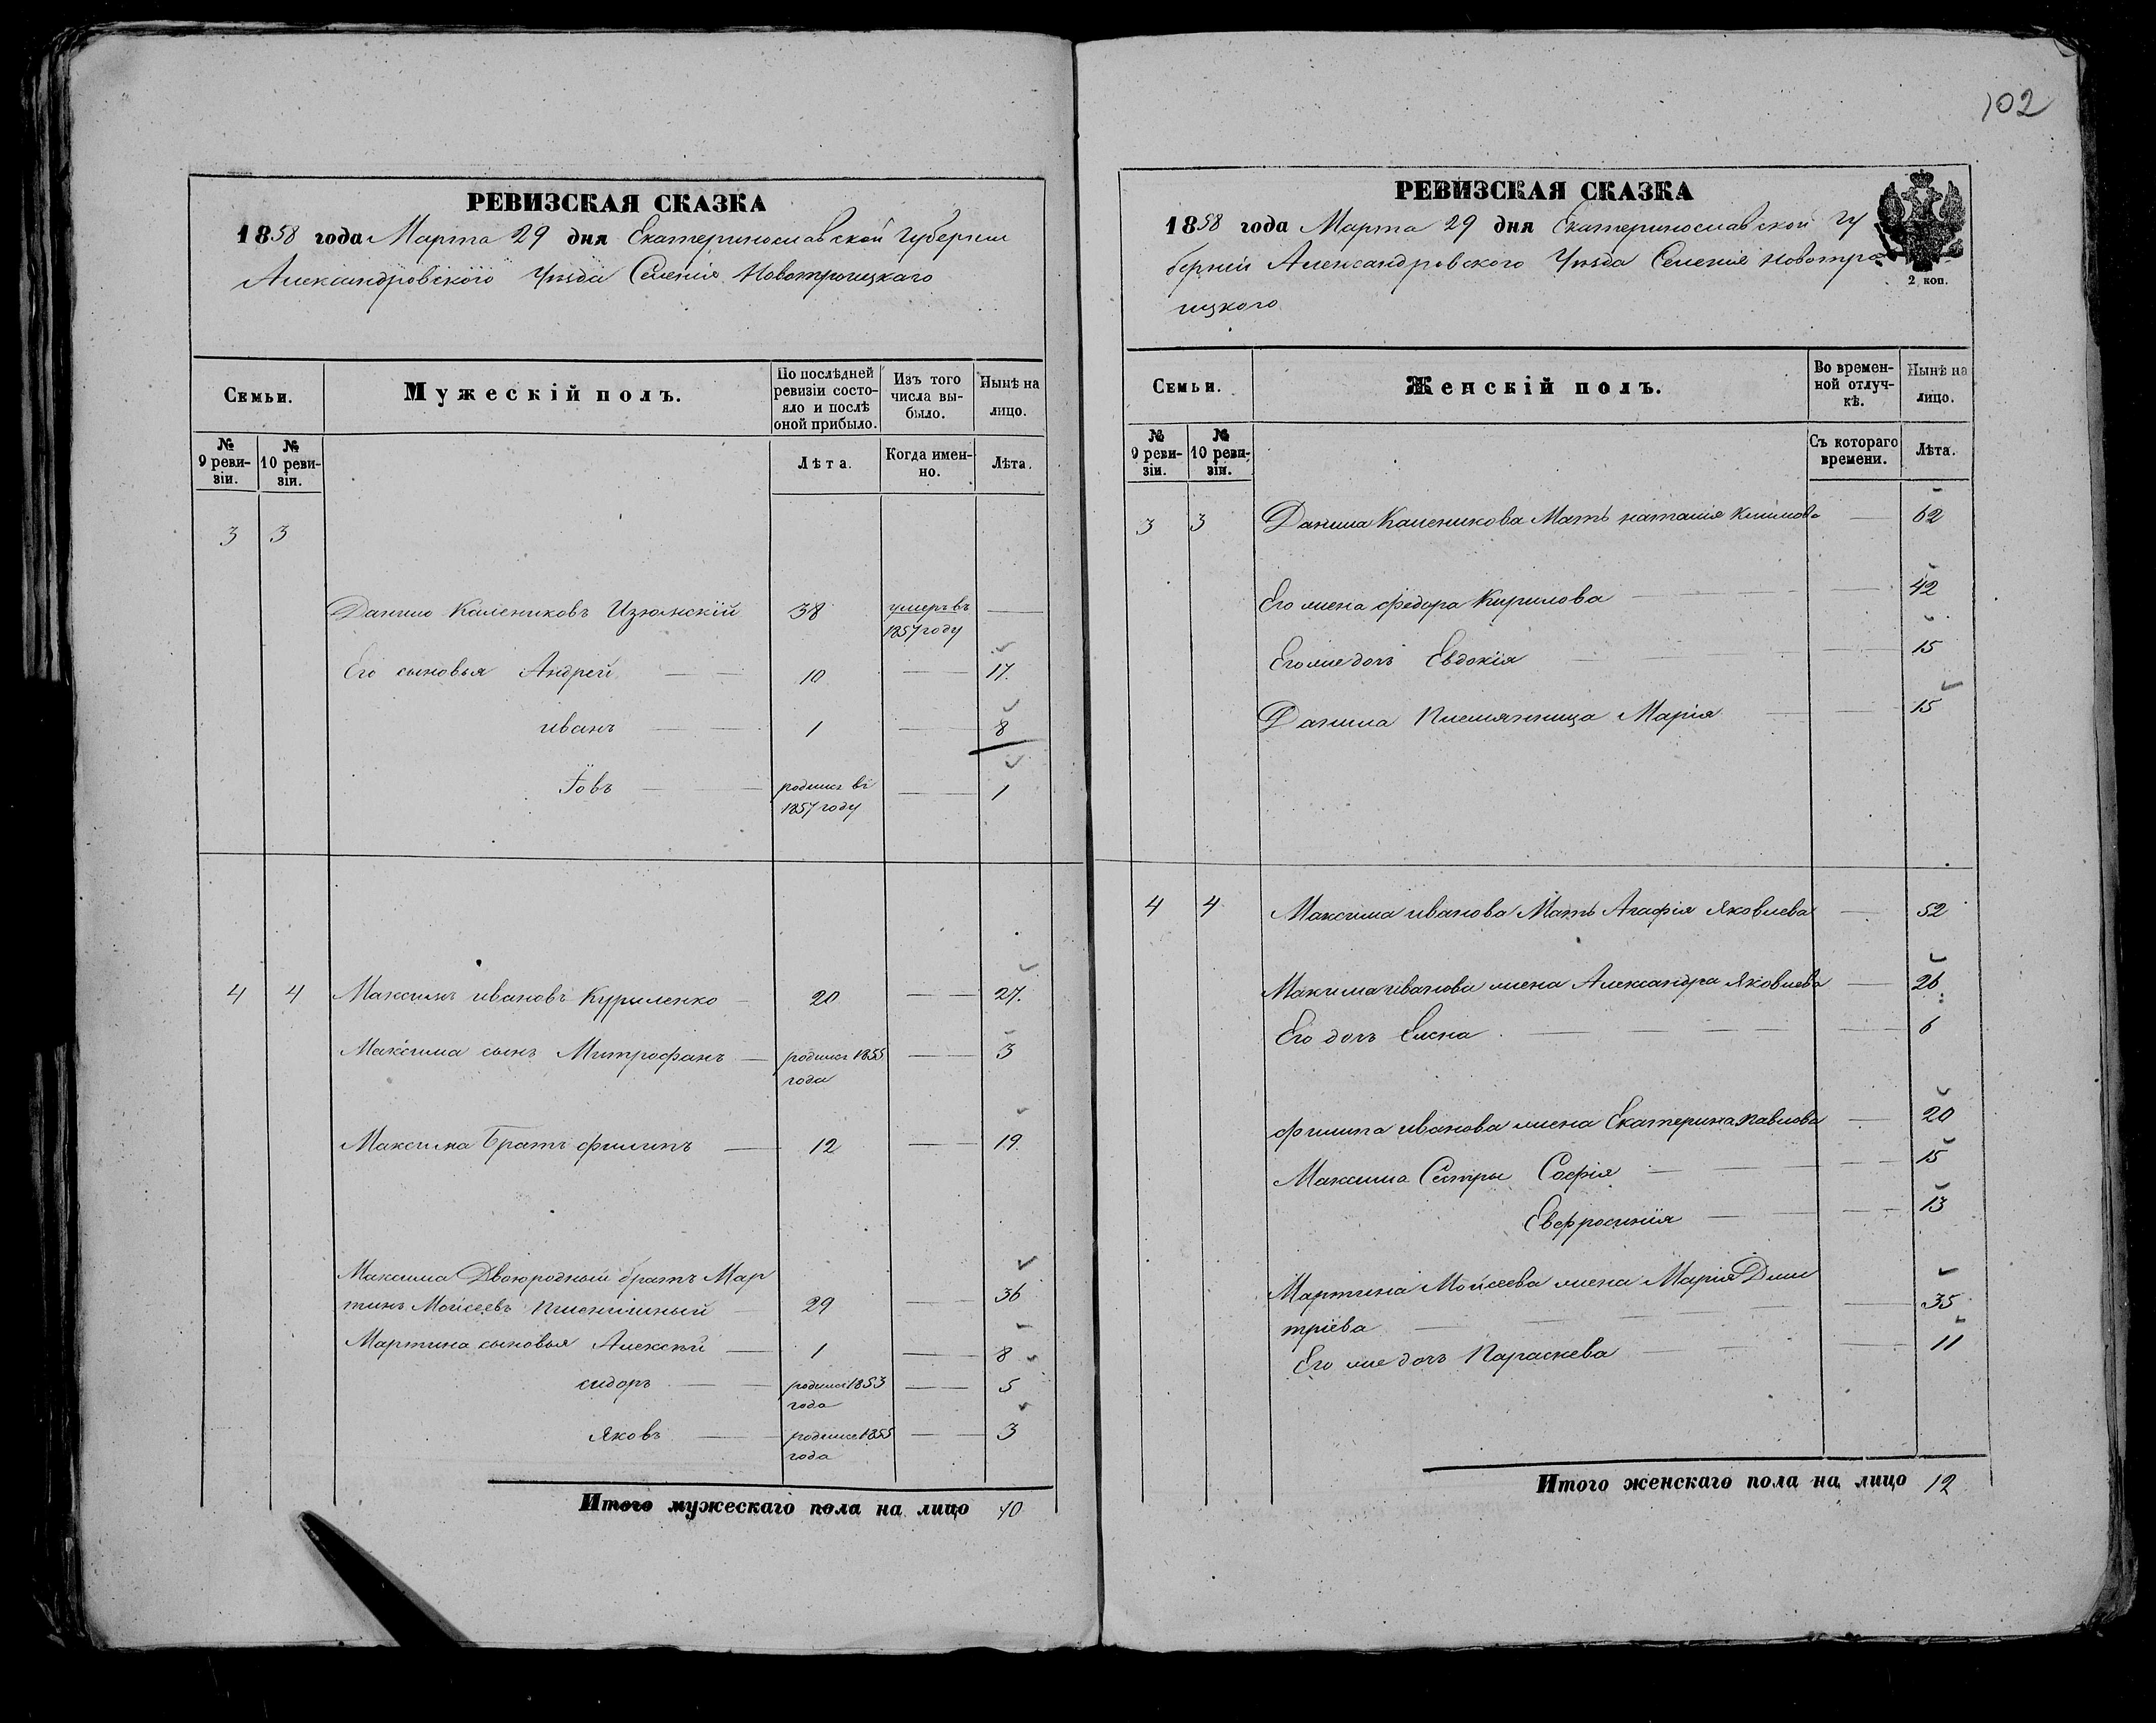 102
РЕВИЗСКАЯ СКАЗКА
1858 года Марта 29 дня Екатеринославской губернии
Александровского Уѣзда Селенія Новотроицкаго
Семьи.
Мужескій полъ.
По послѣдней ревизіи состояло и послѣ оной прибыло.
Изъ того числа выбыло.
Нынѣ на лицо.
№ 9 ревизіи.
№ 10 ревизіи.
Лѣта.
Когда именно.
Лѣта.
3 3
Данило Калениковъ Изюмскій 38 умеръ въ 1857 году
Его сыновья Андрей 10 17.
иванъ 1 8
Іовъ родился въ 1857 году 1
4 4 Максимъ ивановъ Куриленко 20 27.
Максима сынъ Митрофанъ родился 1855 года 3
Максима Братъ филипъ 12 19.
Максима Двоюродный братъ Мар
тинъ Моисеевъ Пшеничный 29 36
Мартина сыновья Алексѣй 1 8
сидоръ родился 1853 года 5
Яковъ родился 1855 года 3
Итого мужескаго пола на лицо 10
РЕВИЗСКАЯ СКАЗКА
1858 года Марта 29 дня Екатеринославской гу
берніи Александровского Уѣзда Селенія Новотро
ицкого
2 коп.
Семьи.
Женскій полъ.
Во временной отлучкѣ.
Нынѣ на лицо.
№ 9 ревизіи.
№ 10 ревизіи.
Съ котораго времени.
Лѣта.
3 3 Данила Каленикова Мать наталія Климова 62
Его жена федора Кирилова 42
Его же дочь Евдокія 15
Данила Племянница Марія 15
4 4 Максима иванова Мать Агафія Яковлева 52
Максима иванова жена Александра Яковлева 26
Его дочь Елена 6
филипа иванова жена Екатерина Павлова 20
Максима Сестры Софія 15
Евфросинія 13
Мартина Моисеева жена Марія Дми
тріева 35
Его же дочь Параскева 11
Итого женскаго пола на лицо 12